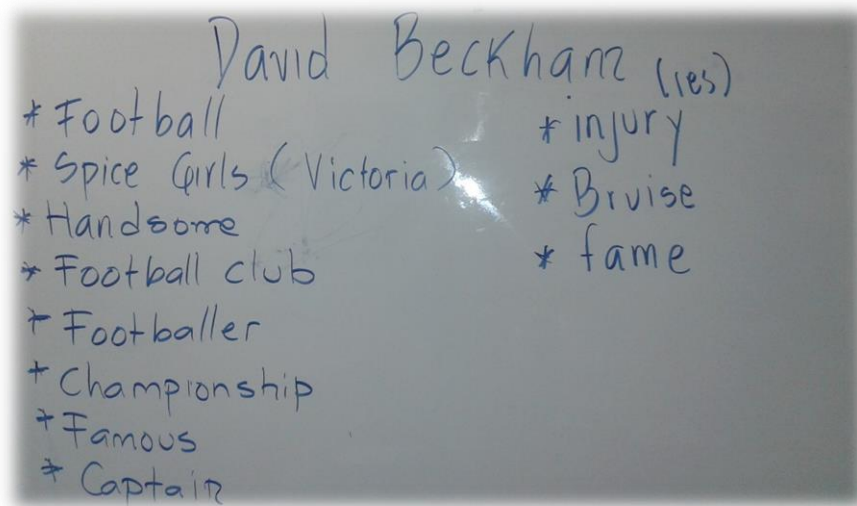 David Beckham
* Football
* Spice Girls (Victoria)
* Handsome
* Football club
+ Footballer
+ Championship
+ Famous
* Captain
(ies)
* injury
* Bruise
* fame